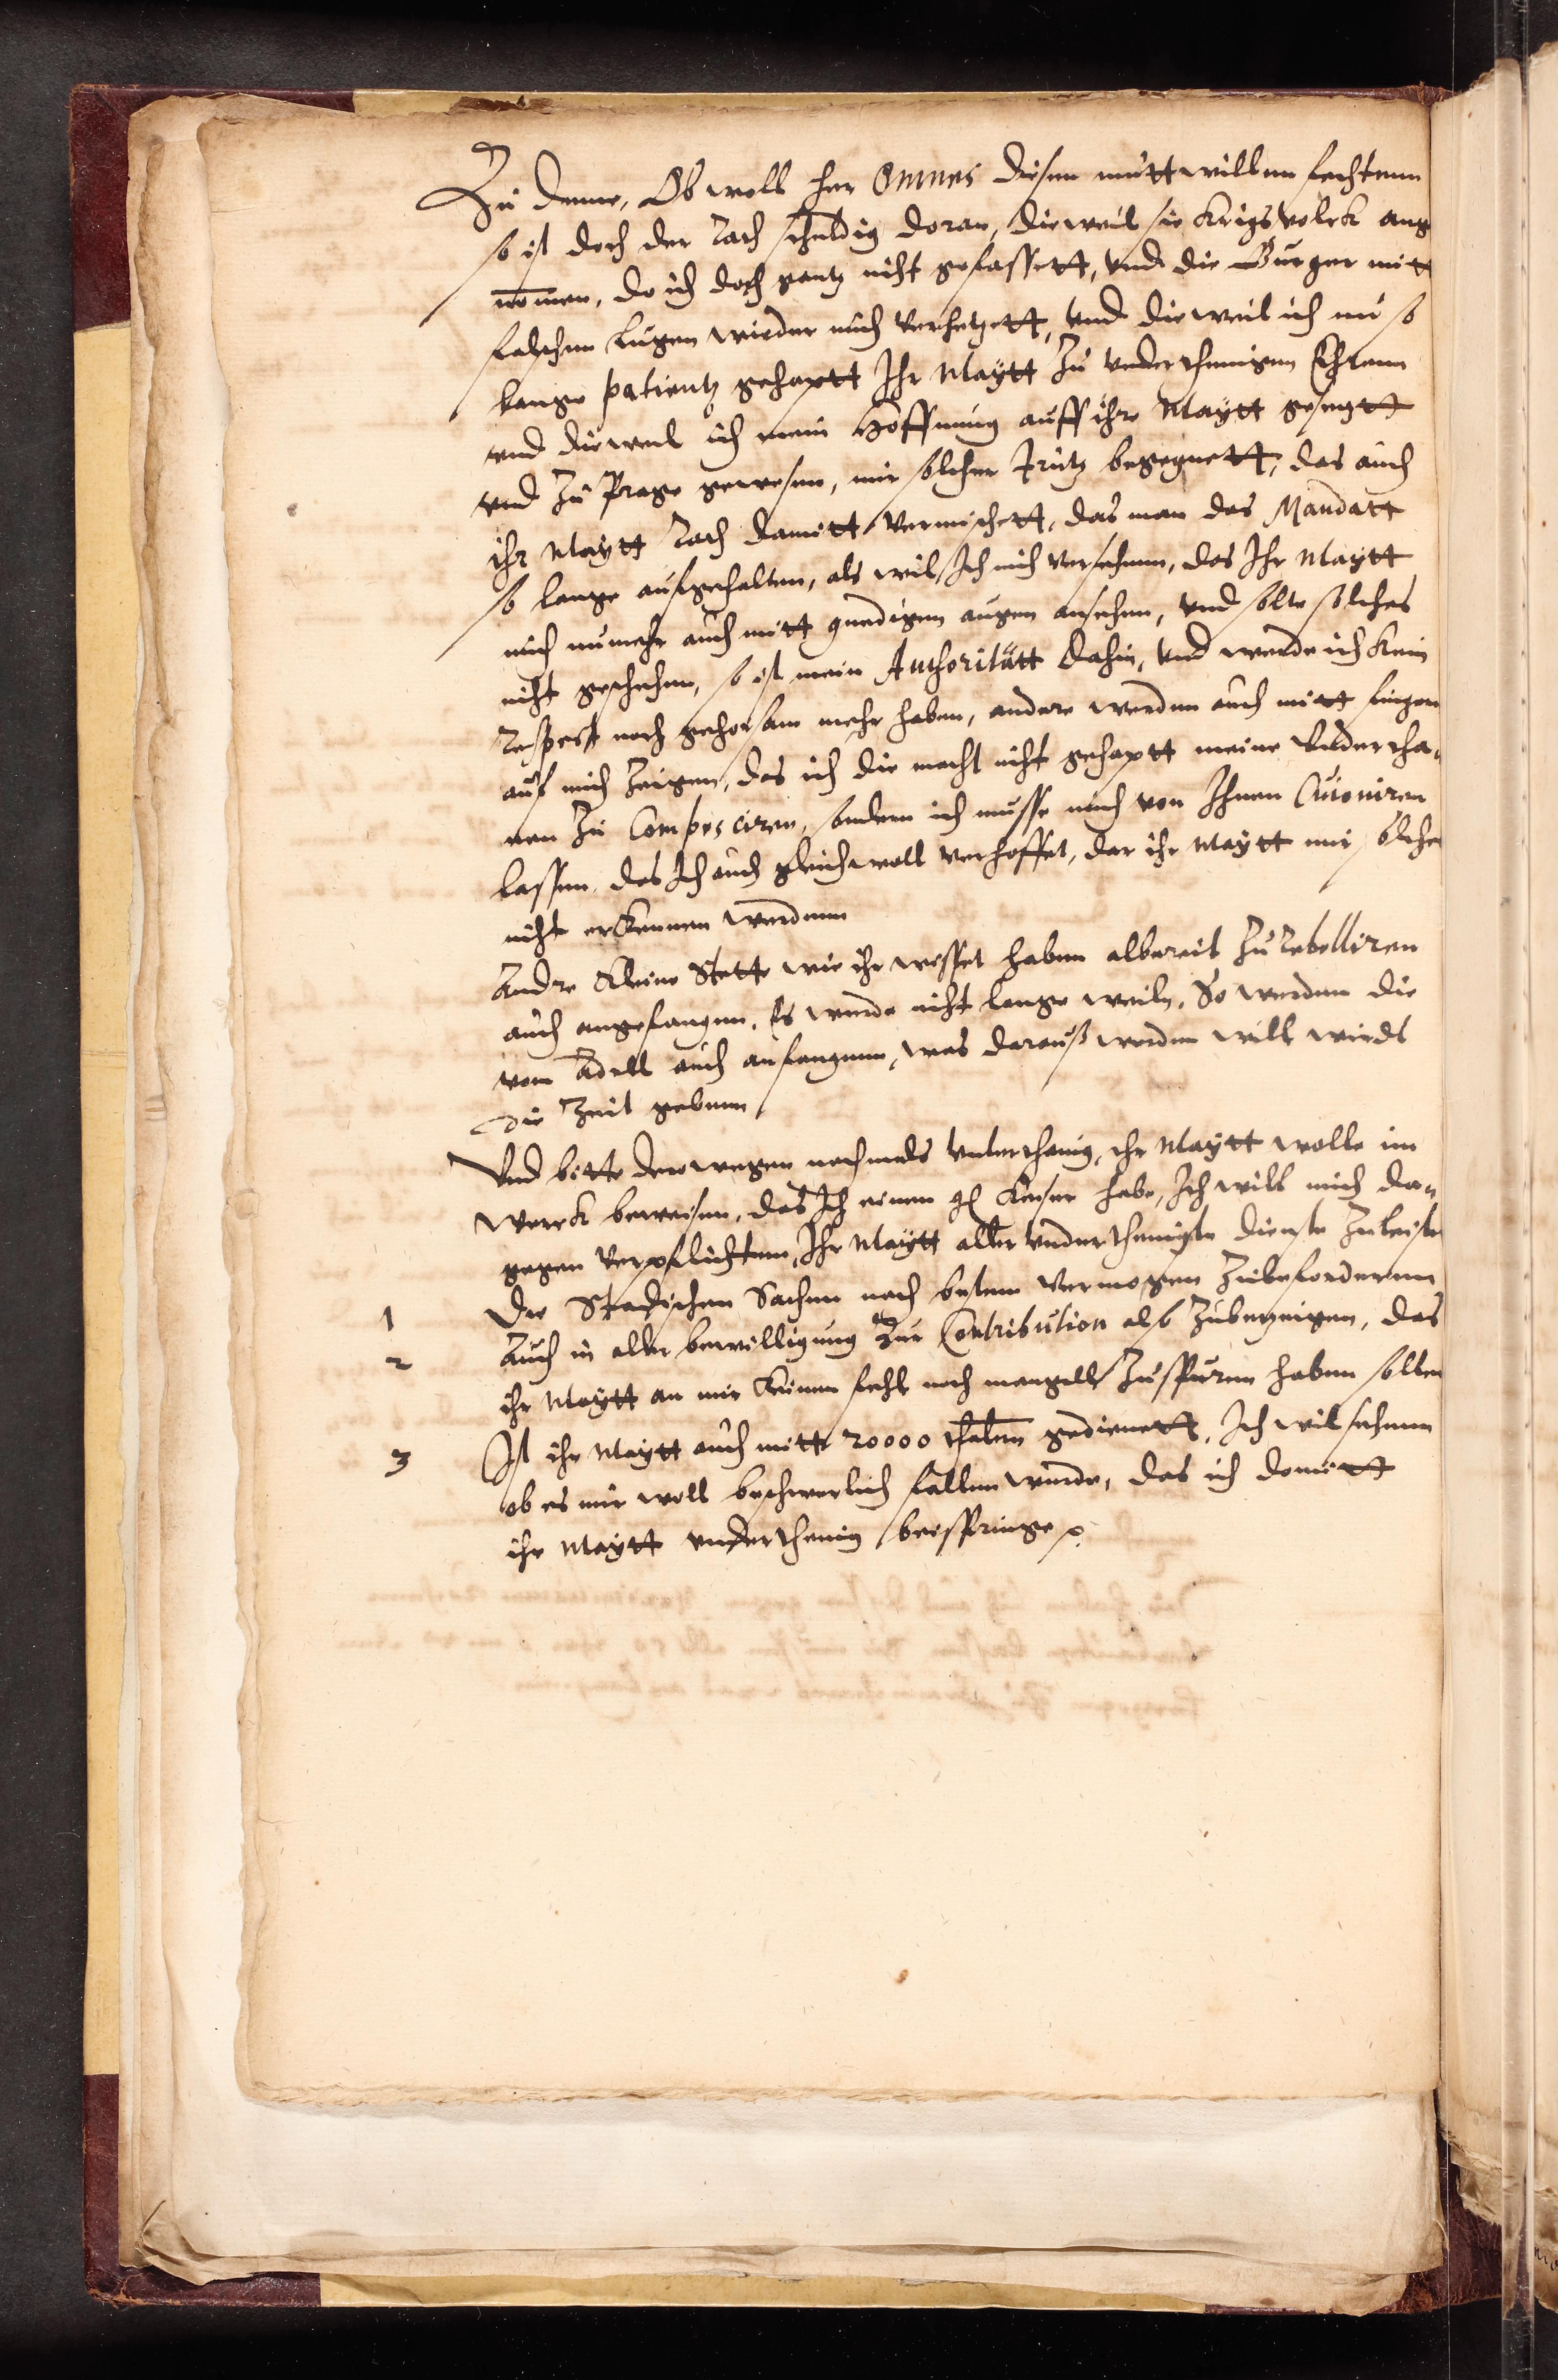 Zu deme, Ob woll her Omnes diesen muttwillen fechtenn
so ist doch der Rath schuldig doran, dieweil sie Krigsvolck ang
nommen, do ich doch gantz nicht gefassett, vnd die Burger mitt
falschen Lugen wieder mich verhetzett, vnd dieweil ich nu so
lange patientz gehaptt Ihr Maytt zu underthenigen Ehrenn
vnd dieweil ich mein Hoffnung auff ihre Maytt gesetztt
vnd zu Prage gewesen, mir solcher trutz begegnett, das auch
ihr Maytt Rath damitt vermischett, das man das Mandatt
so lange aufgehalten, als wil Ich mich versehenn, das Ihr Maytt
mich numehr auch mitt gnedigen augen ansehen, vnd solte solches
nicht geschehen, so ist mein Authoritätt dahin, vnd werde ich kein
Respect noch gehorsam mehr haben, andere werden auch mitt fingern
auf mich zeigen, das ich die macht nicht gehaptt meine Vndertha-
nen zu Compesciren, sondern ich musse mich von Ihnen
lassen, das Ich auch gleichwoll verhoffet, dar ihr Maytt mir solches
nicht erkennen werdenn
Andre kleine Stette wie ihr wisset haben albereit zu rebelliren
auch angefangen, Es wurde nicht lange weiln, So werden die
vom Adell auch anfangenn, was darauß werden will wirds
die Zeit gebenn
Vnd bitte derowegen nochmals vnterthenig, ihr Maytt wolle im
werck beweisen, das Ich einen g Keiser habe, Ich will mich da-
gegen verpflichtenn, Ihr Maytt aller underthenigste dienste zu leisten
1 Die Stadischen Sachen nach bestem vermogen zubefordernn
2 Auch in aller bewilligung der Contribution also zubezeigen, das
ihr Maytt an mir keinen fehl noch mangell zuspuren haben sollen
3 Ist ihr Maytt auch mitt 20000 thalern gedienett, Ich wil sehenn
ob es mir woll beschwerlich fallen wurde, das ich domitt
ihr Maytt underthenig beispringe